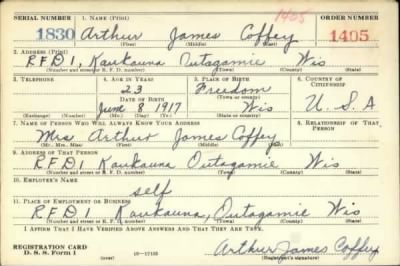 SERIAL NUMBER 1. NAME (Print) 1405 ORDER NUMBER
1830 Arthur James Coffey 1405
(First) (Middle) (Last)
2. ADDRESS (Print)
R.F.D 1, Kaukauna Outagamie Wis
(Number and street or R. F. D. number) (Town) (County) (State)
3. TELEPHONE 4. AGE IN YEARS 5. PLACE OF BIRTH 6. COUNTRY OF CITIZENSHIP
23 Freedom
DATE OF BIRTH (Town or county)
June 8 1917 Wis U.S.A
(Exchange) (Number) (Mo.) (Day) (Yr.) (State or country)
7. NAME OF PERSON WHO WILL ALWAYS KNOW YOUR ADDRESS 8. RELATIONSHIP OF THAT PERSON
Mrs Arthur James Coffey
(Mr., Mrs., Miss) (First) (Middle) (Last)
9. ADDRESS OF THAT PERSON
R.F.D 1 Kaukauna Outagamie Wis
(Number and street or R. F. D. number) (Town) (County) (State)
10. EMPLOYER'S NAME
self
11. PLACE OF EMPLOYMENT OR BUSINESS
R.F.D 1 Kaukauna, Outagamie Wis
(Number and street or R. F. D. number) (Town) (County) (State)
I AFFIRM THAT I HAVE VERIFIED ABOVE ANSWERS AND THAT THEY ARE TRUE.
REGISTRATION CARD
D. S. S. Form 1 16—17105 Arthur James Coffey
(over) (Registrant's signature)